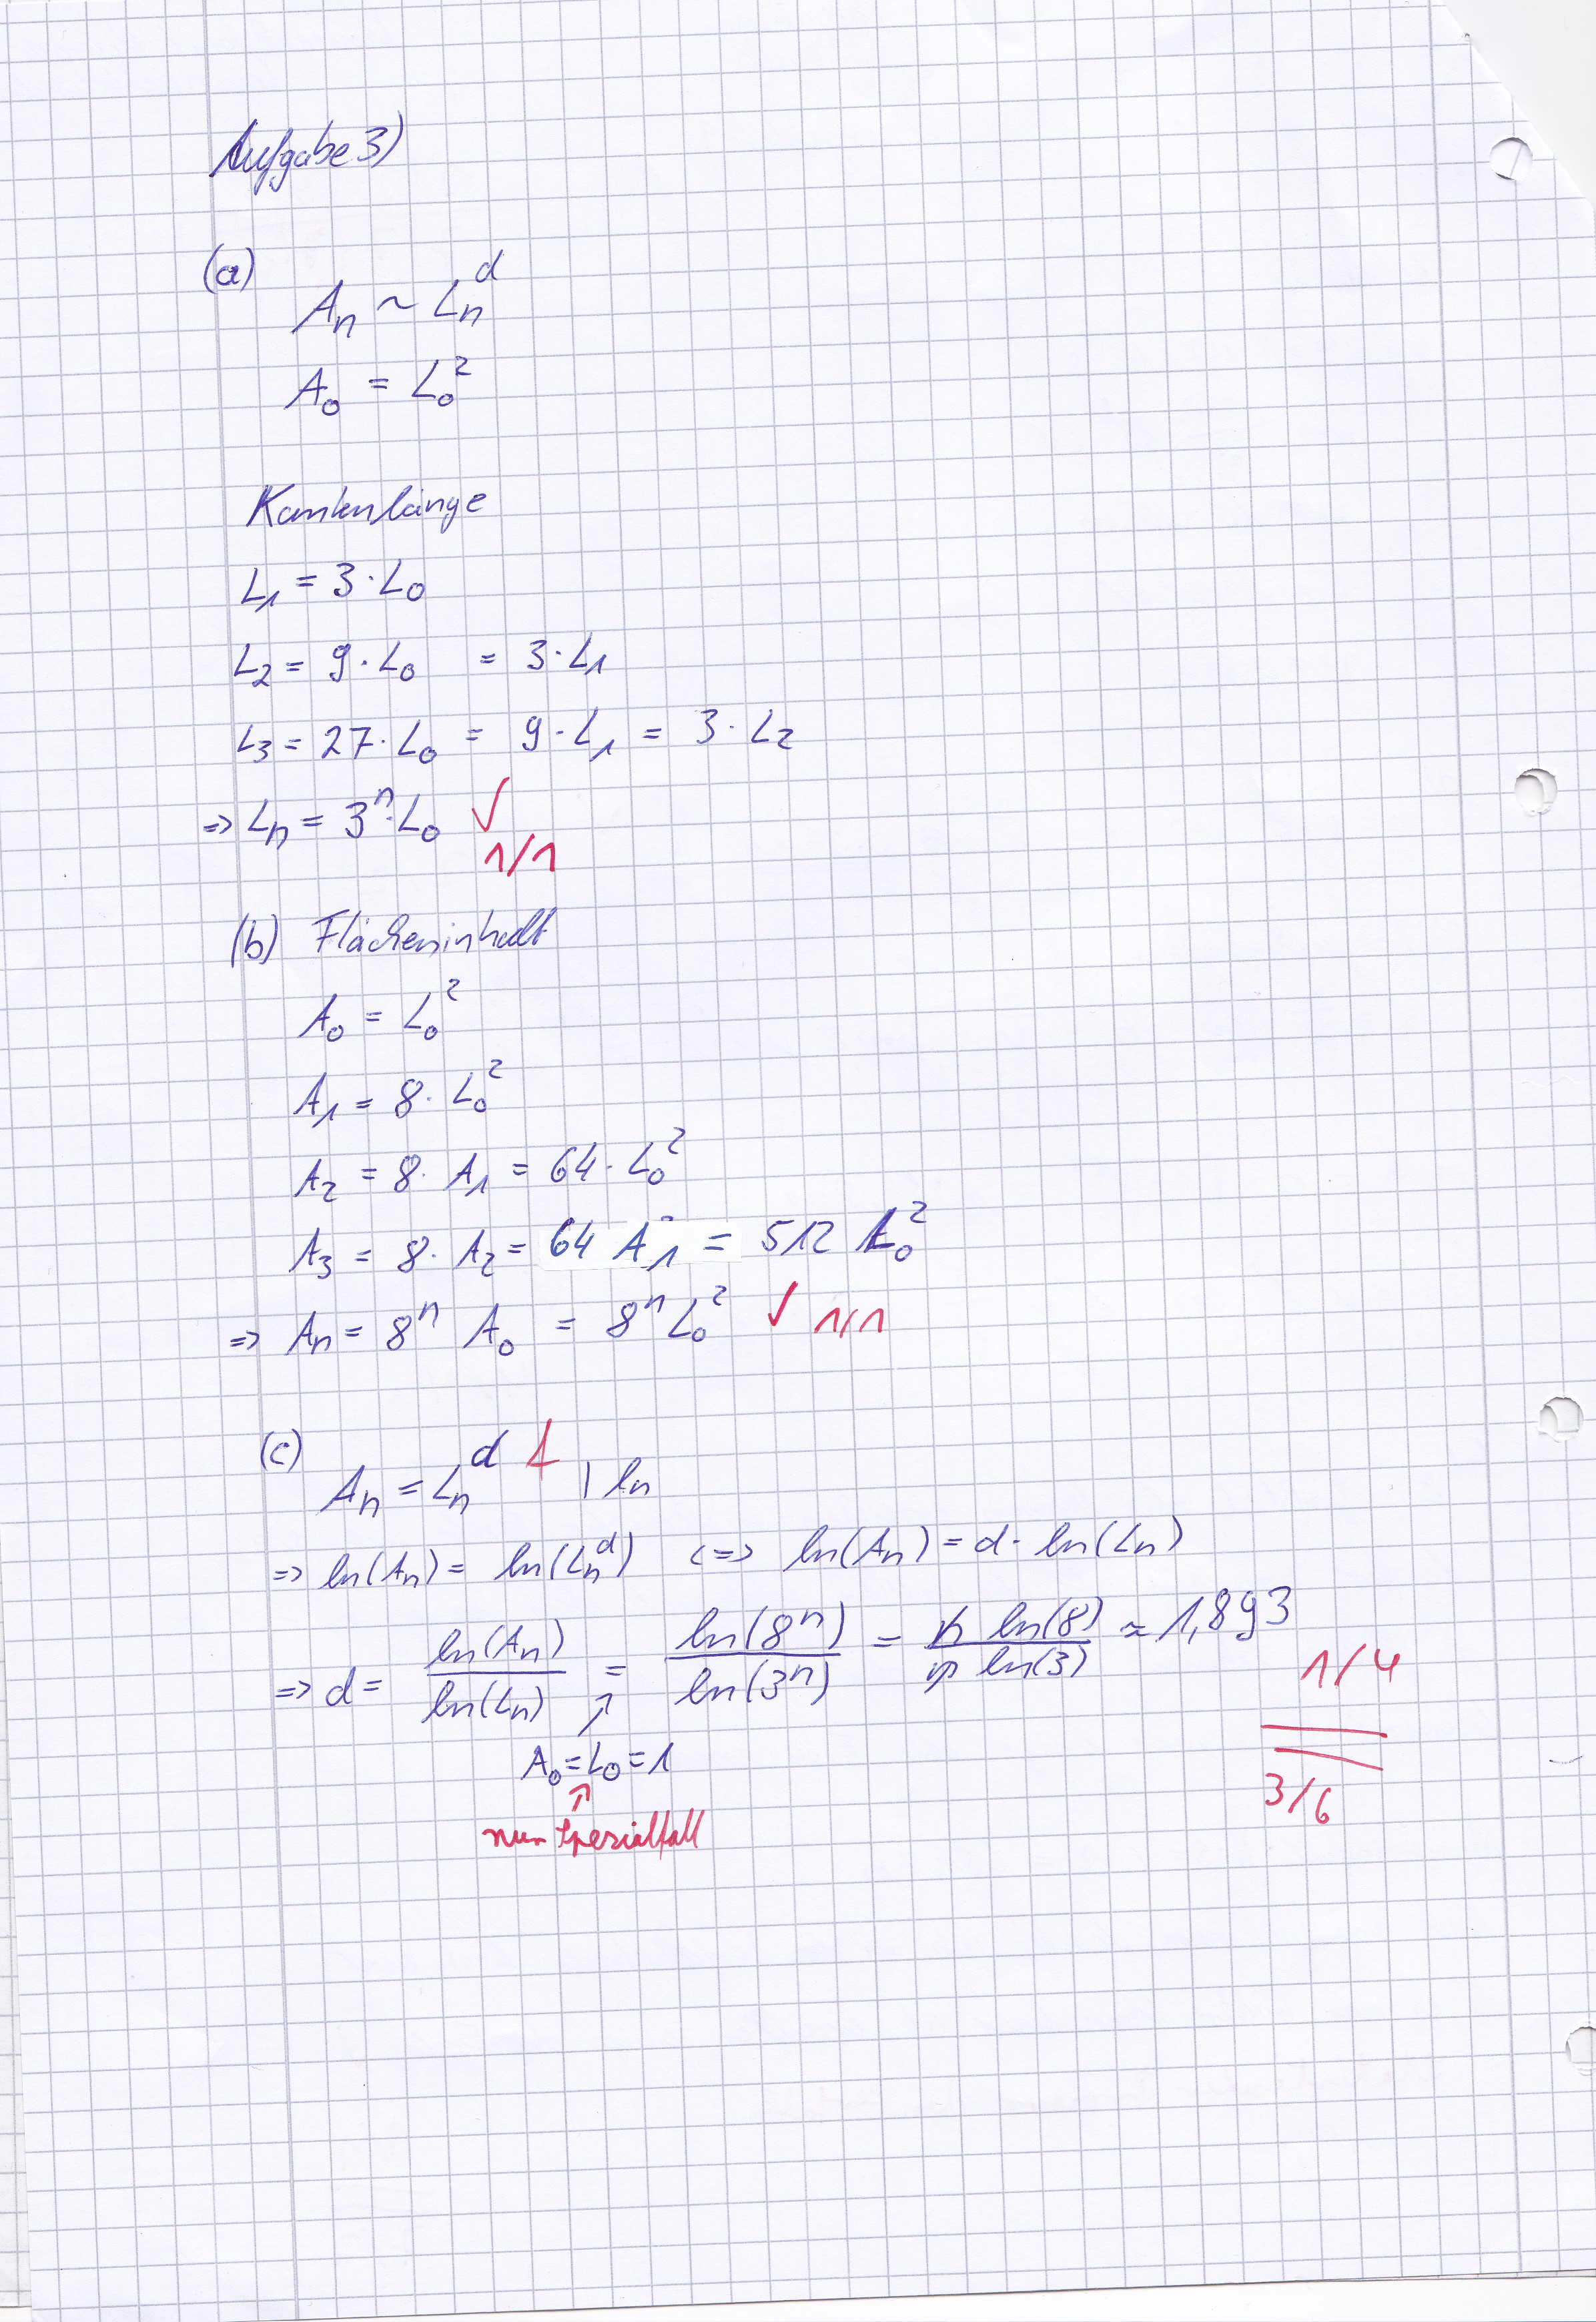 Aufgabe 3)
(a)
Aₙ ~ Lₙᵈ
A₀ = L₀²
Kantenlänge
L₁ = 3·L₀
L₂ = 9·L₀ = 3·L₁
L₃ = 27·L₀ = 9·L₁ = 3·L₂
=> Lₙ = 3ⁿ·L₀ ✓
1/1
(b) Flächeninhalt
A₀ = L₀²
A₁ = 8·L₀²
A₂ = 8·A₁ = 64·L₀²
A₃ = 8·A₂ = 64 A₁ = 512 L₀²
=> Aₙ = 8ⁿ A₀ = 8ⁿ L₀² ✓ 1/1
(c)
Aₙ = Lₙᵈ | ln
=> ln(Aₙ) = ln(Lₙᵈ) <=> ln(Aₙ) = d·ln(Lₙ)
=> d = ln(Aₙ)/ln(Lₙ) = ln(8ⁿ)/ln(3ⁿ) = n ln(8)/n ln(3) ≈ 1,893
1/4
A₀=L₀=1
↑
nur Spezialfall
3/6